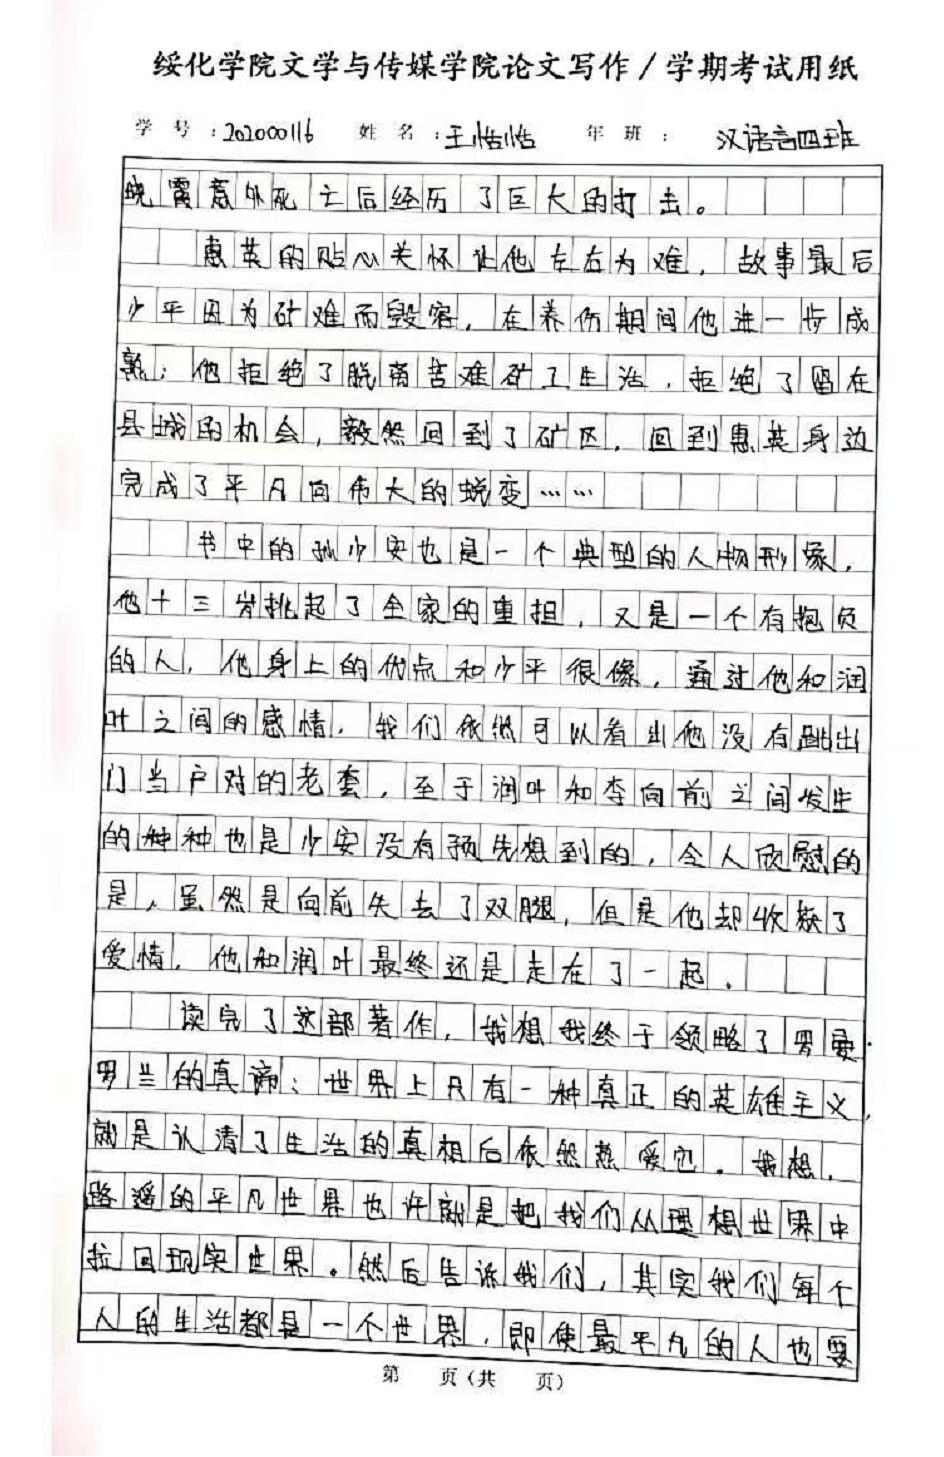 绥化学院文学与传媒学院论文写作/学期考试用纸
学号:202000116 姓名:王恬恬 年班: 汉语言四班
晓霞意外死亡后经历了巨大的打击。
惠英的贴心关怀让他左右为难,故事最后
少平因为矿难而毁容,在养伤期间他进一步成
熟;他拒绝了脱离苦难矿工生活,拒绝了留在
县城的机会,毅然回到了矿区,回到惠英身边
完成了平凡向伟大的蜕变……
书中的孙少安也是一个典型的人物形象,
他十三岁挑起了全家的重担,又是一个有抱负
的人,他身上的优点和少平很像,通过他和润
叶之间的感情,我们依然可以看出他没有跳出
门当户对的老套,至于润叶和李向前之间发生
的种种也是少安没有预先想到的,令人欣慰的
是,虽然是向前失去了双腿,但是他却收获了
爱情,他和润叶最终还是走在了一起。
读完了这部著作,我想我终于领略了罗曼·
罗兰的真谛:世界上只有一种真正的英雄主义,
就是认清了生活的真相后依然热爱它。我想,
路遥的平凡世界也许就是把我们从理想世界中
拉回现实世界。然后告诉我们,其实我们每个
人的生活都是一个世界,即使最平凡的人也要
第 页(共 页)